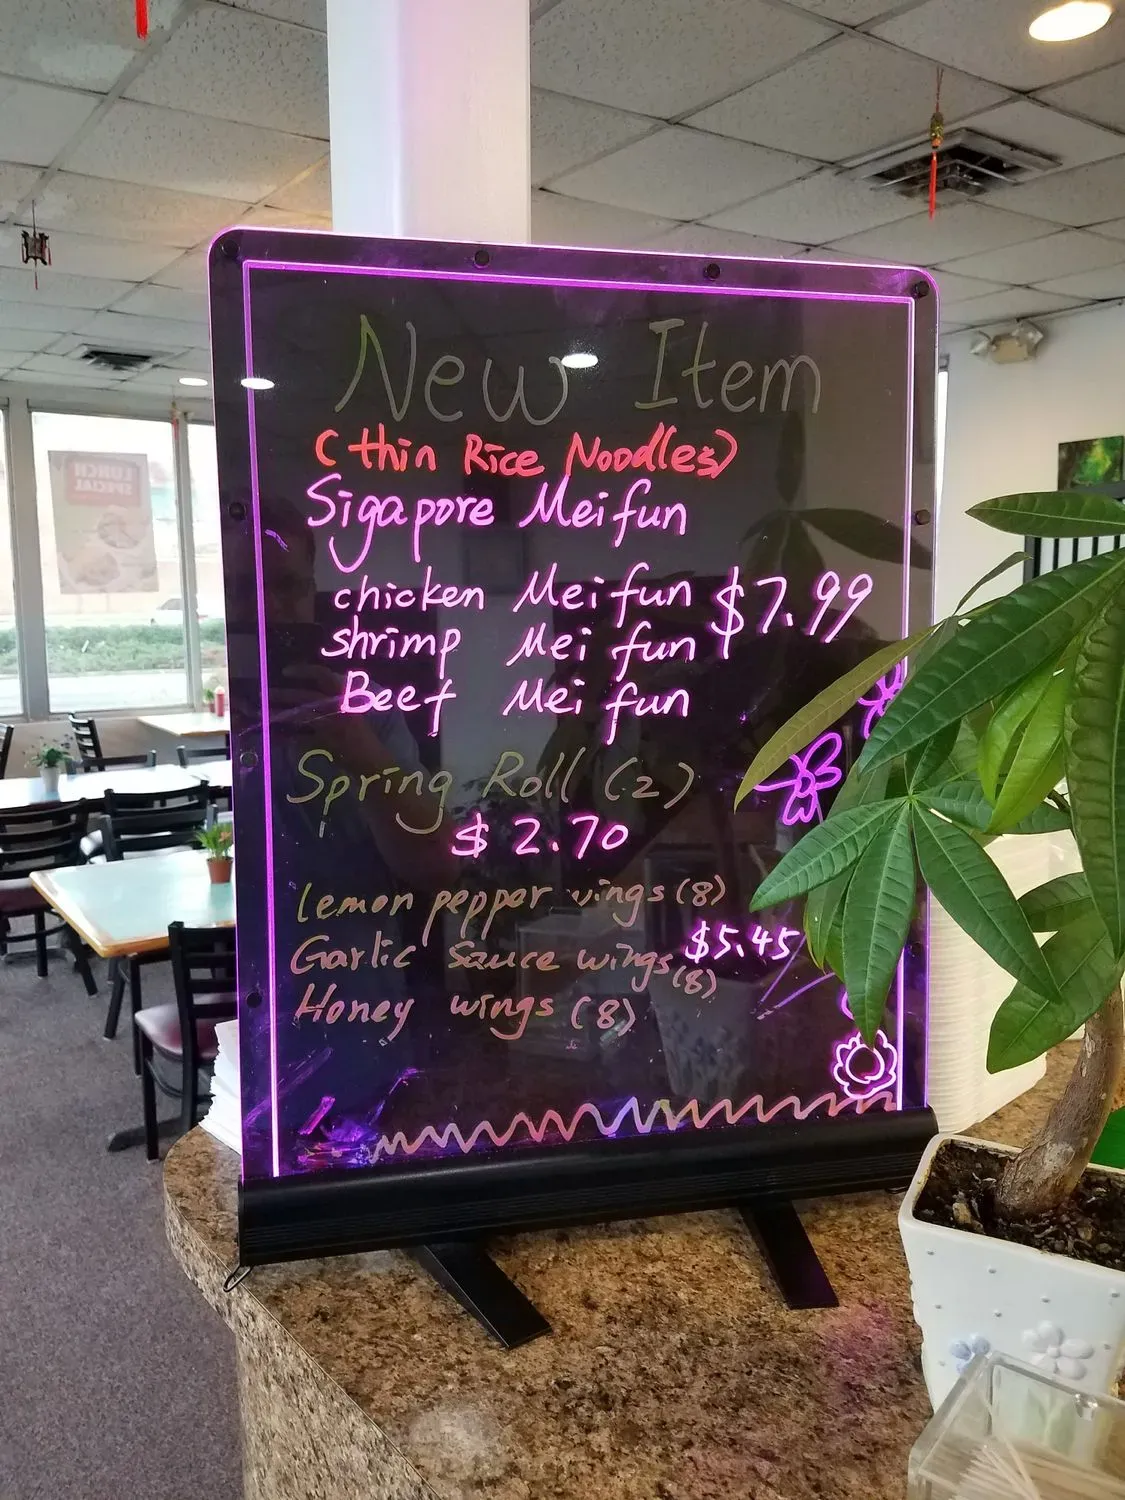 LUNCH
SPECIAL
New Item
(thin Rice Noodles)
Sigapore Meifun
chicken Meifun $7.99
shrimp Mei fun
Beef Mei fun
Spring Roll (2)
$2.70
lemon pepper wings (8)
Garlic Sauce wings (8) $5.45
Honey wings (8)